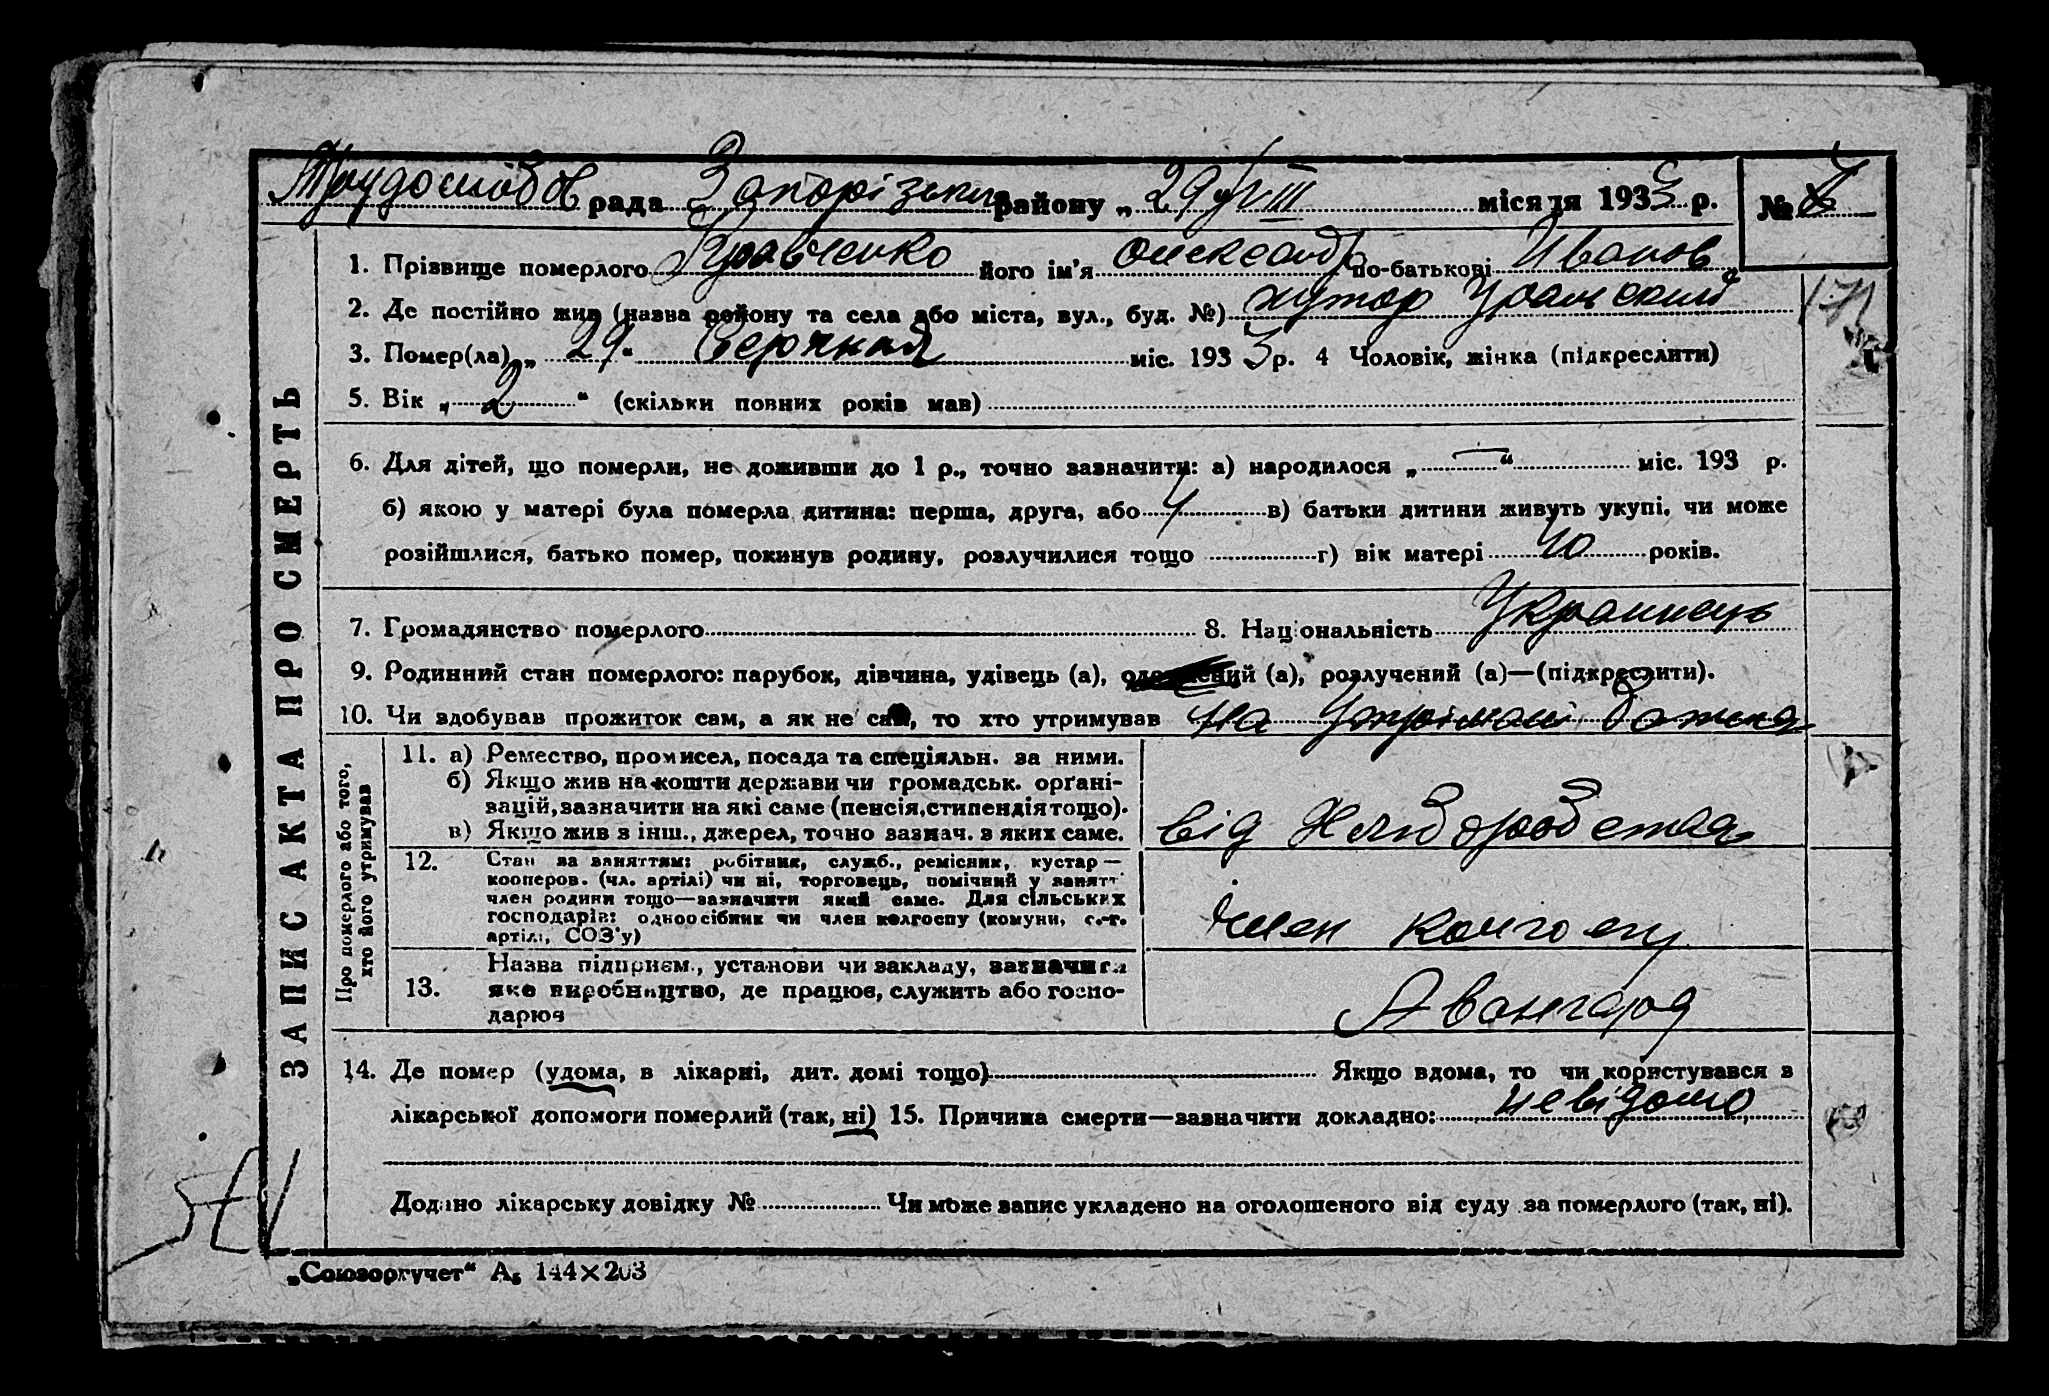 Трудолюбов рада Запорізьким району „ 29 " VIII місяця 1933 р. №
1. Прізвище померлого Кравченко його ім'я Олександр по-батькові Иванов
2. Де постійно жив (назва району та села або міста, вул., буд. №) хутор
3. Помер(ла) „ 29 " Серпня міс. 1933 р. 4 Чоловік, жінка (підкреслити)
5. Вік „ 2 " (скільки повних років мав)
6. Для дітей, що померли, не доживши до 1 р., точно зазначити: а) народилося „ — " міс. 193 р.
б) якою у матері була померла дитина: перша, друга, або 4 в) батьки дитини живуть укупі, чи може
розійшлися, батько помер, покинув родину, розлучилися тощо г) вік матері 40 років.
7. Громадянство померлого 8. Національність Украинець
9. Родинний стан померлого: парубок, дівчина, удівець (а), одружений (а), розлучений (а)—(підкреслити).
10. Чи здобував прожиток сам, а як не сам, то хто утримував на утрімані батька
ЗАПИС АКТА ПРО СМЕРТЬ
Про померлого або того,
хто його утримував
11. а) Ремество, промисел, посада та спеціяльн. за ними.
б) Якщо жив на кошти держави чи громадськ. орґані-
зацій, зазначити на які саме (пенсія, стипендія тощо).
в) Якщо жив з інш., джерел, точно зазнач. з яких саме.
від Хліборобства
12. Стан за заняттям: робітник, служб., ремісник, кустар —
кооперов. (чл. артілі) чи ні, торговець, помічний у занятт
член родини тощо—зазначити який саме. Для сільських
господарів: одноосібник чи член колгоспу (комуни, с.-г.
артілі, СОЗ'у)
Член колгоспу
13. Назва підприєм., установи чи закладу, зазначити
яке виробництво, де працює, служить або госпо-
дарює
Авангард
14. Де помер (удома, в лікарні, дит. домі тощо) Якщо вдома, то чи користувався з
лікарської допомоги померлий (так, ні) 15. Причина смерти—зазначити докладно: невідомо
Додано лікарську довідку № Чи може запис укладено на оголошеного від суду за померлого (так, ні).
„Союзоргучет" А₅ 144×203